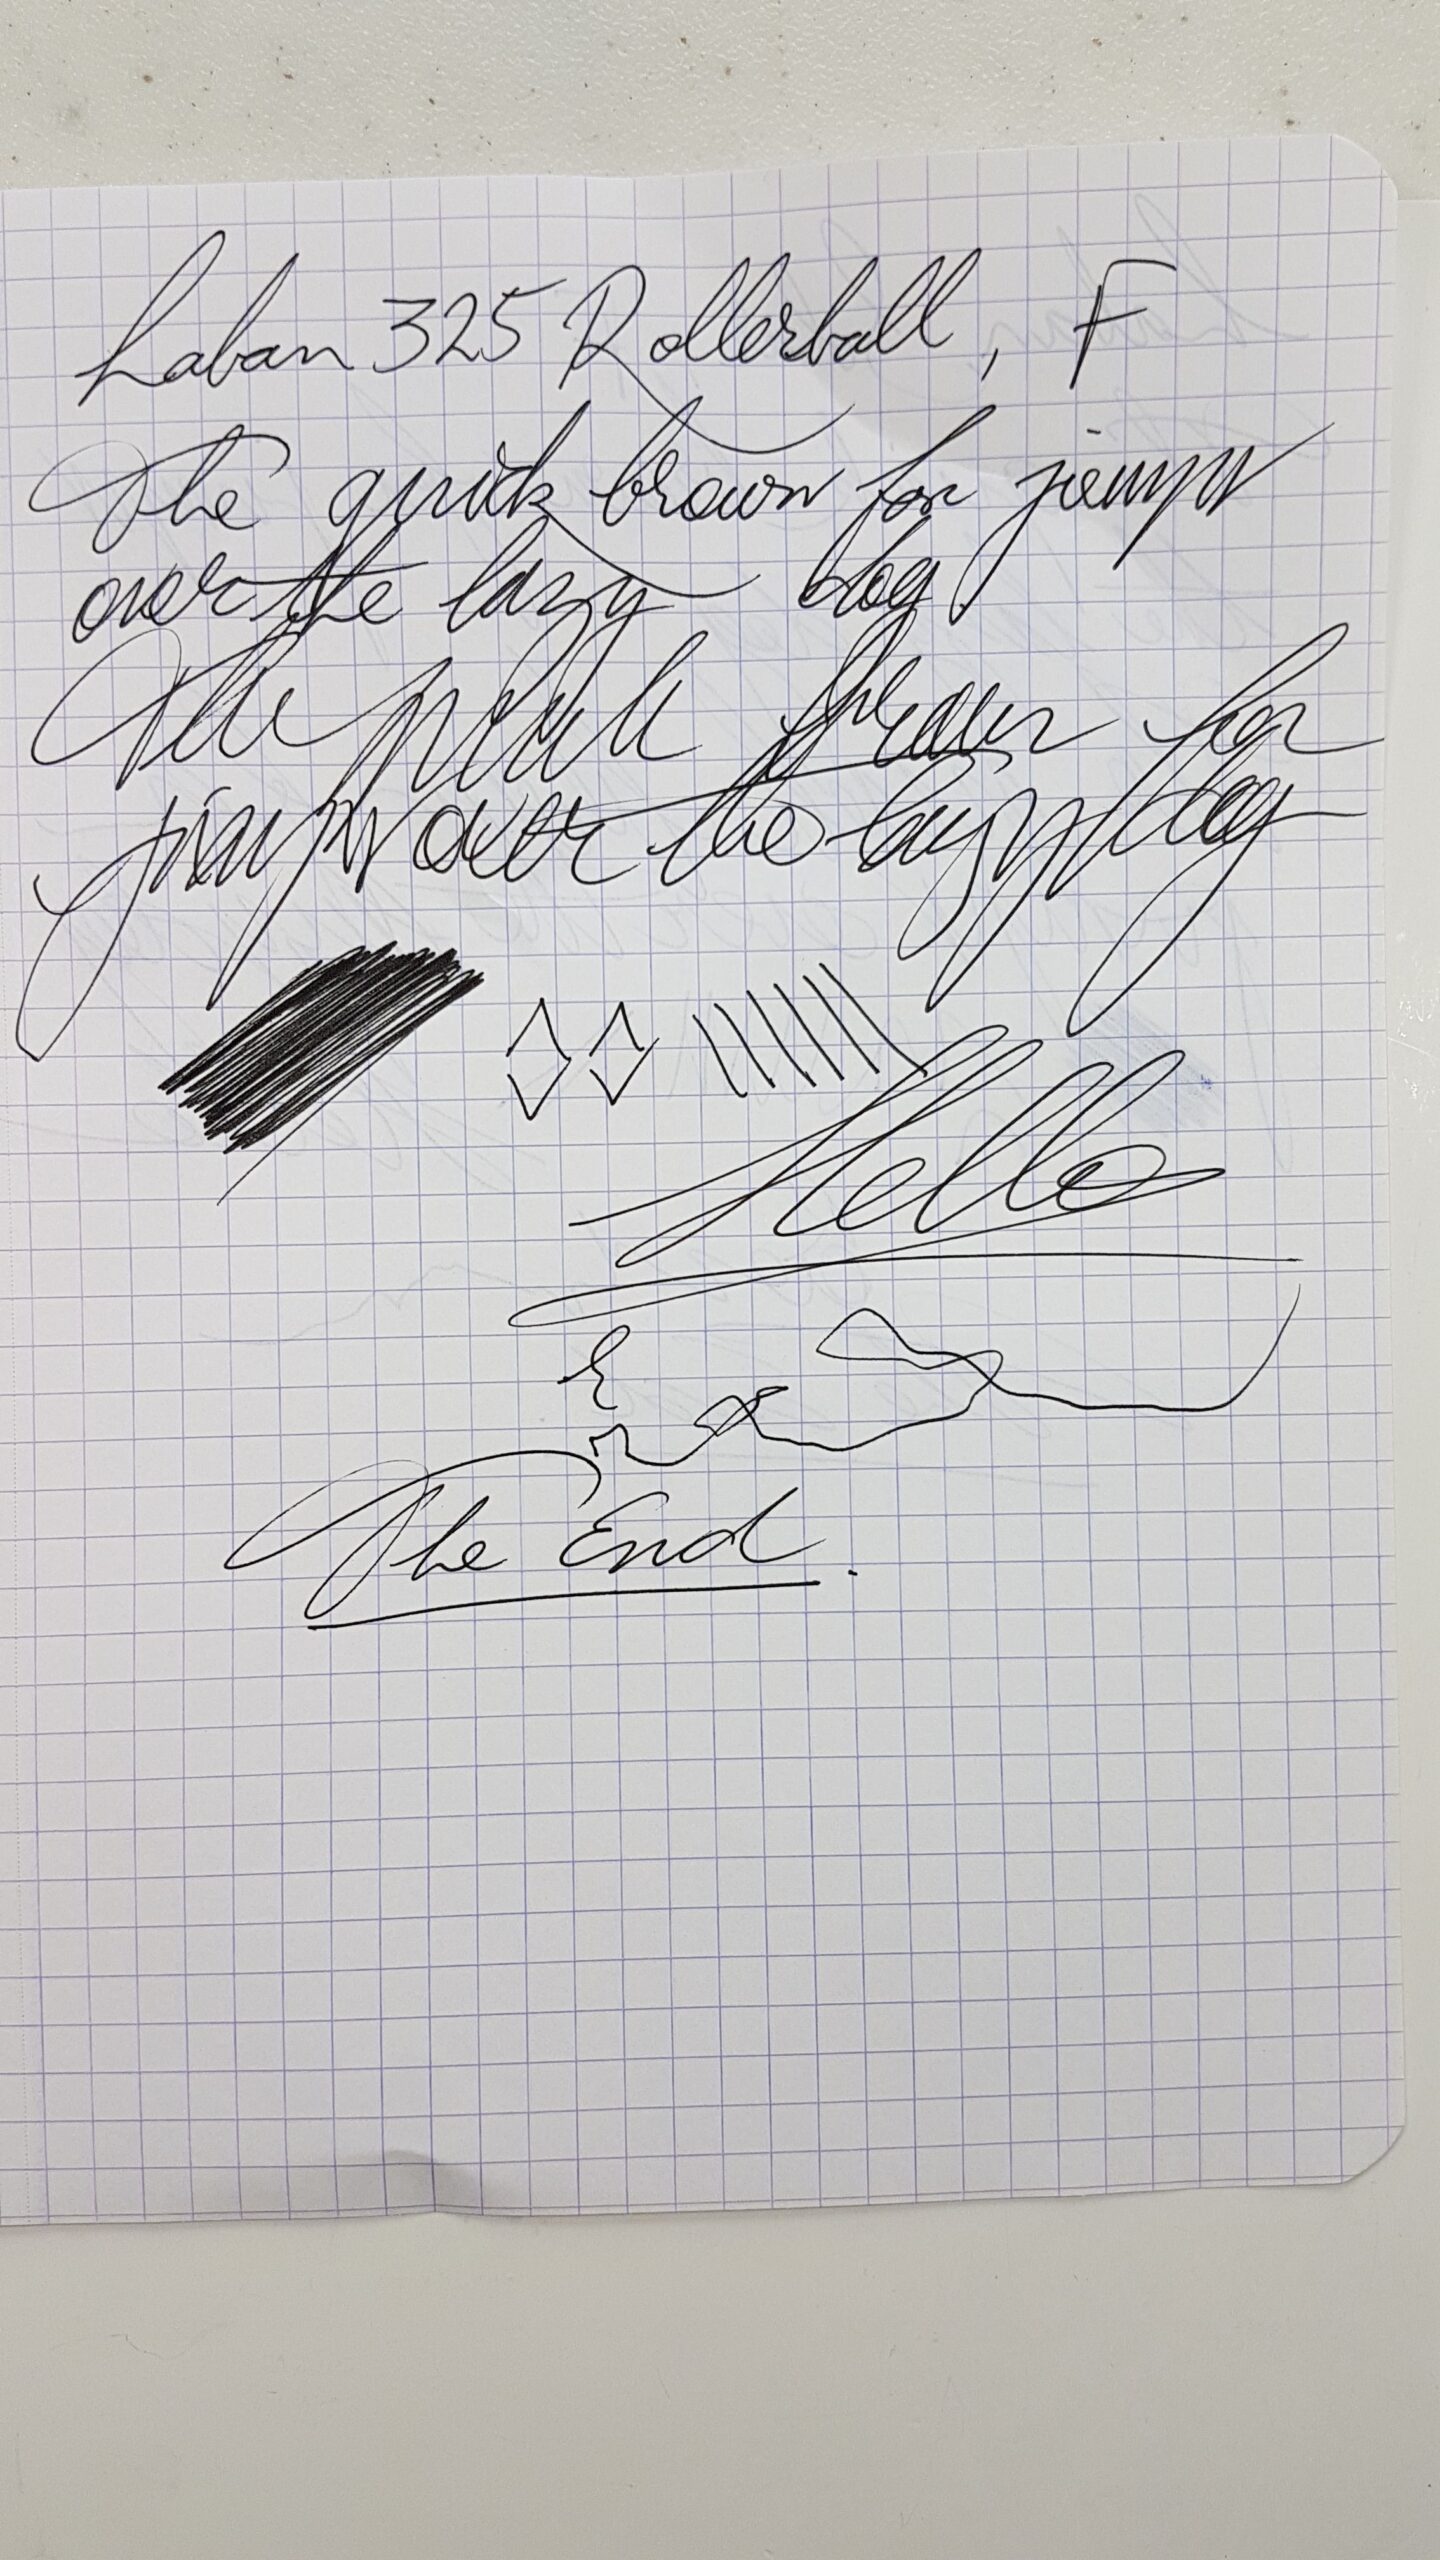 Laban 325 Rollerball, F
The quick brown fox jumps
over the lazy dog
The quick brown fox
jumps over the lazy dog
Hello
The End.